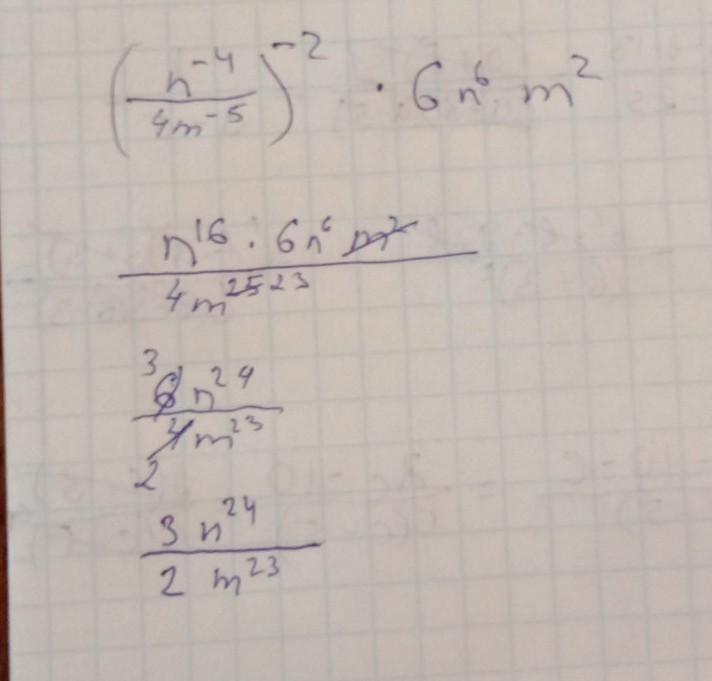 (n⁻⁴/4m⁻⁵)⁻² · 6n⁶ m²
n¹⁶ · 6n⁶ m²
4m²⁵ ²³
3
6 n²⁴
4 m²³
2
3 n²⁴
2 m²³